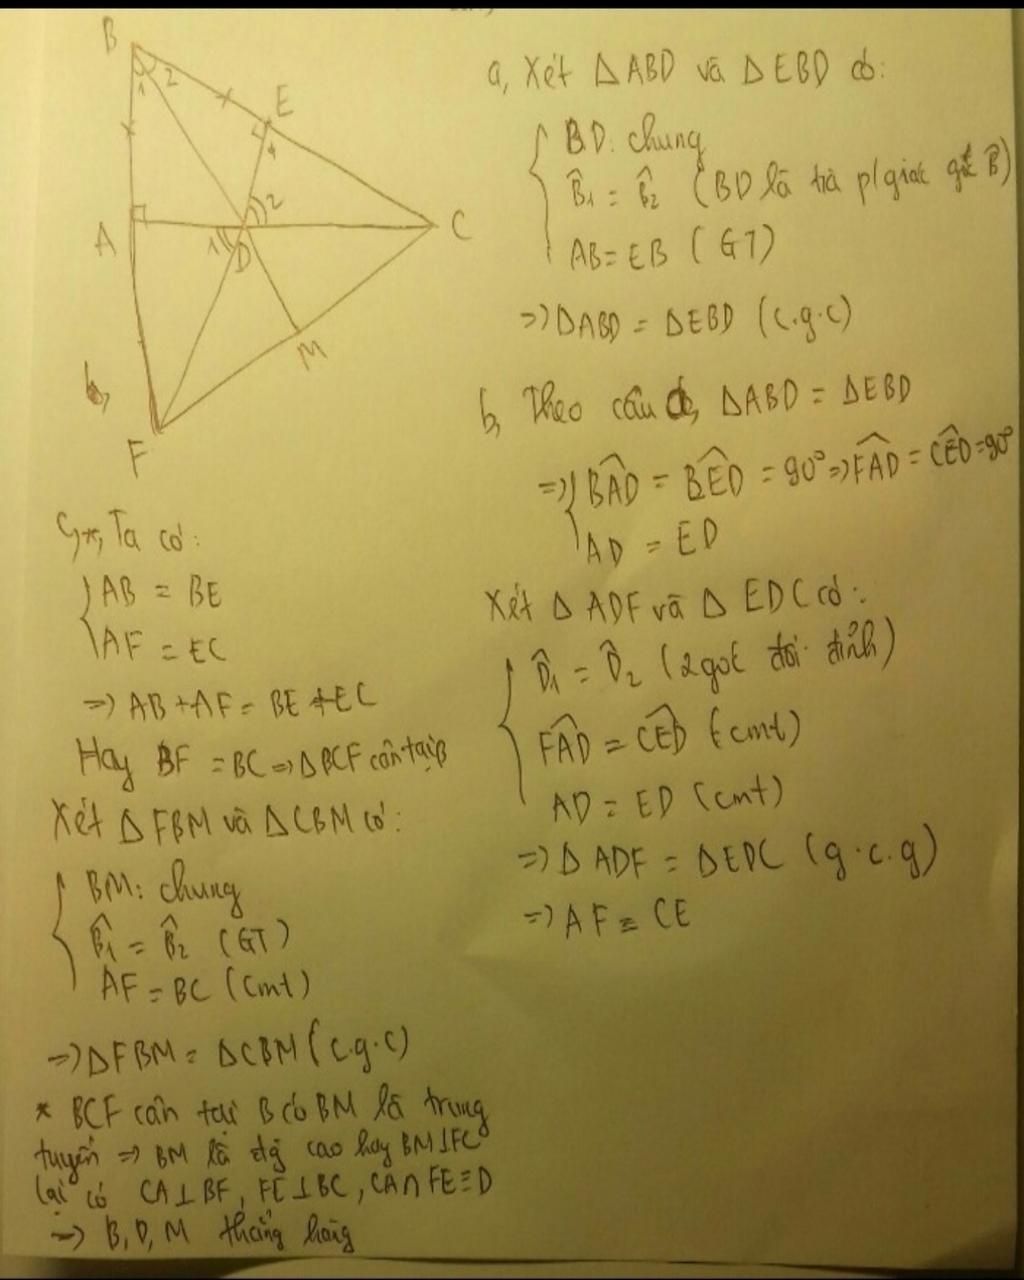 B
1
2
E
1
2
A
1
D
C
M
F
b,
a, Xét ΔABD và ΔEBD có:
BD: chung
B̂1 = B̂2 (BD là tia p/giác góc B̂)
AB = EB (GT)
=> ΔABD = ΔEBD (c.g.c)
b, Theo câu a, ΔABD = ΔEBD
=> BÂD = BÊD = 90° => FÂD = CÊD = 90°
AD = ED
Xét Δ ADF và Δ EDC có:
D̂1 = D̂2 (2 góc đối đỉnh)
FÂD = CÊD (cmt)
AD = ED (cmt)
=> Δ ADF = ΔEDC (g.c.g)
=> AF = CE
c, *, Ta có:
AB = BE
AF = EC
=> AB + AF = BE + EC
Hay BF = BC => ΔBCF cân tại B
Xét Δ FBM và ΔCBM có:
BM: chung
B̂1 = B̂2 (GT)
AF = BC (cmt)
=> ΔFBM = ΔCBM (c.g.c)
* BCF cân tại B có BM là trung
tuyến => BM là đg cao hay BM⊥FC
lại có CA⊥BF, FE⊥BC, CA∩FE≡D
=> B, D, M thẳng hàng